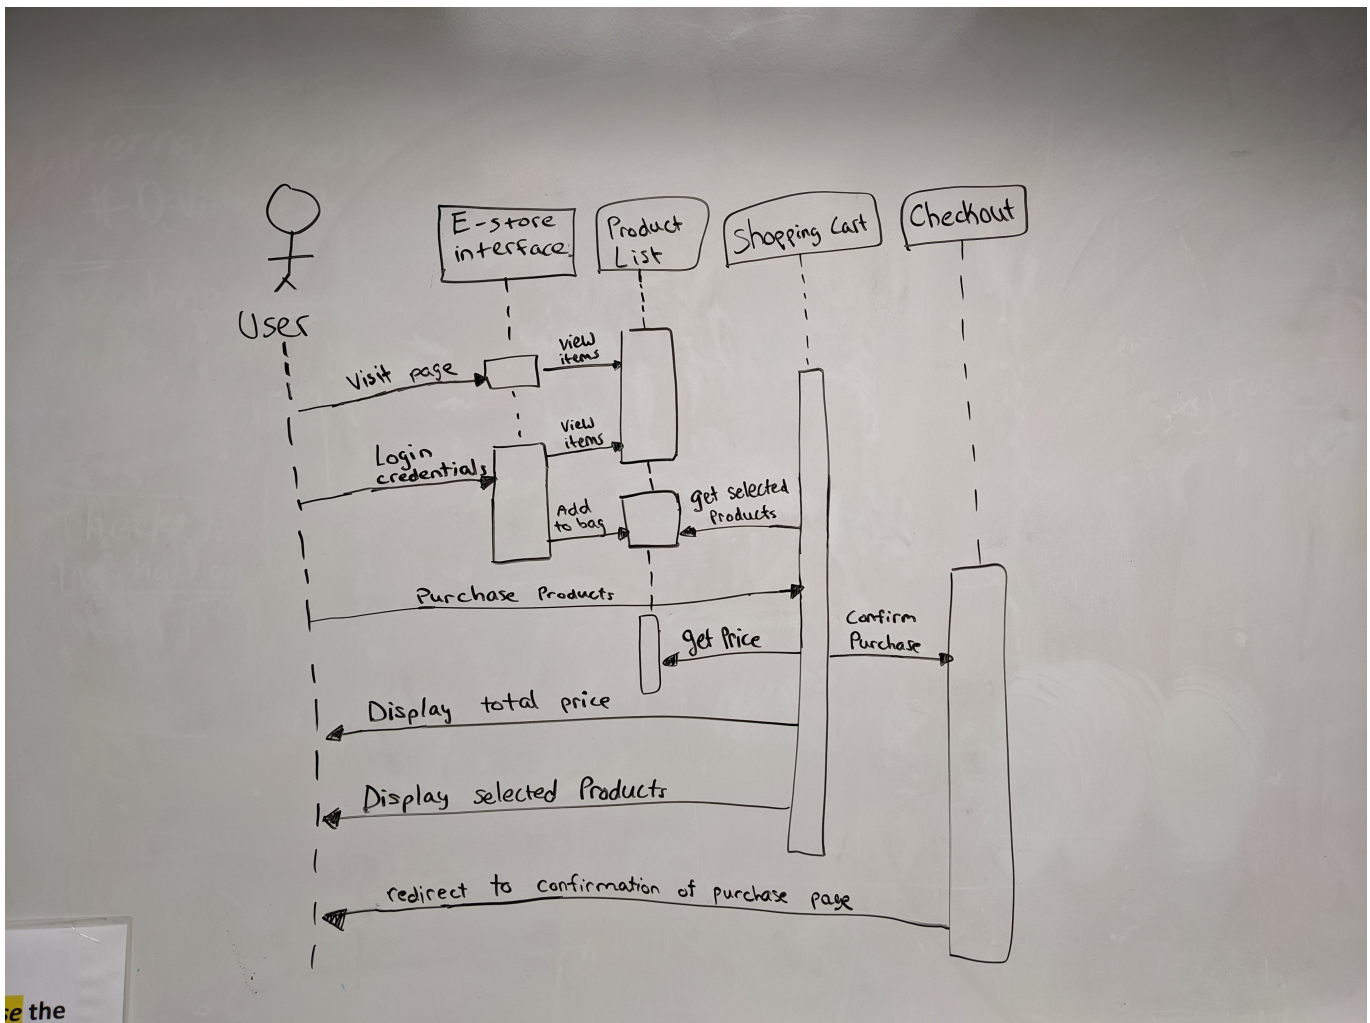 E-store
interface
Product
List
Shopping Cart
Checkout
User
Visit page
View
items
Login
credentials
View
items
Add
to bag
get selected
Products
Purchase Products
get Price
Confirm
Purchase
Display total price
Display selected Products
redirect to confirmation of purchase page
the